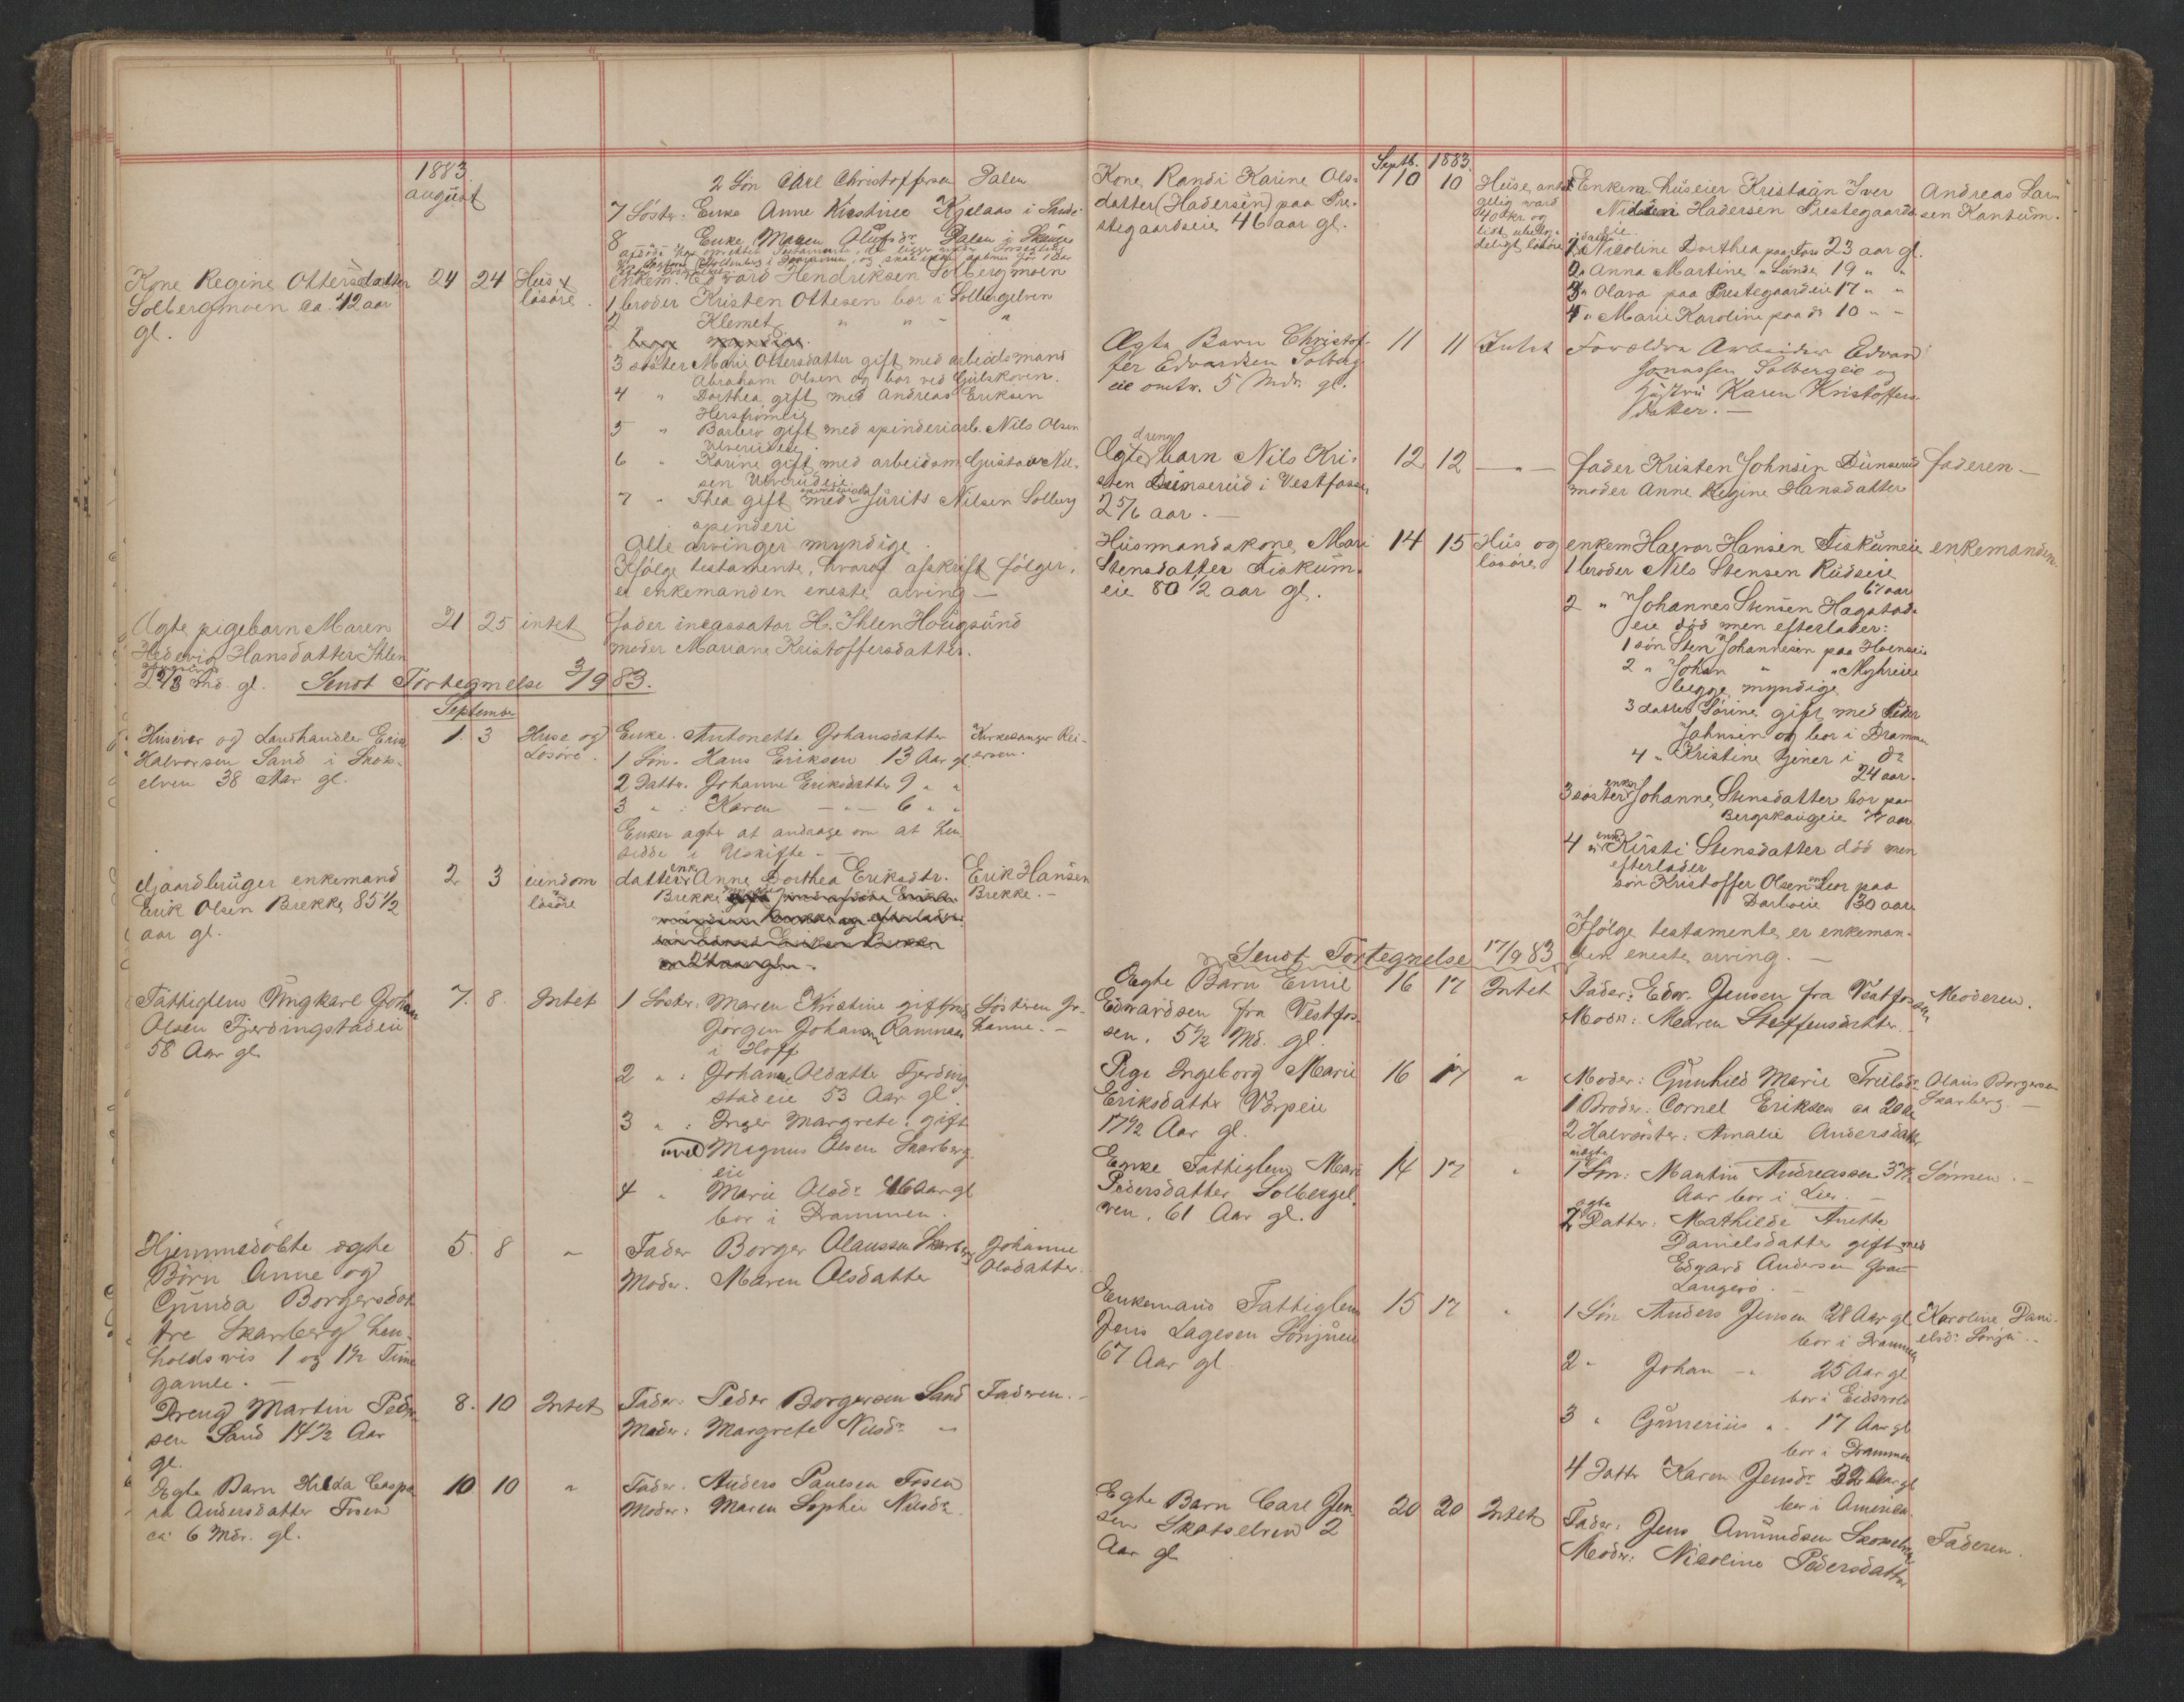 1883.
august
2 Sön Carl Christoffersen Dalen
7 Söster: Enke Anne Kirstine Kjelaas i Sande
8 Enke Maren Olufsdr Dalen i Skauger
Kone Regine Ottersdatter 24 24 Hus &
Solbergmoen ca. 42 aar lösöre.
gl.
enkem. Edward Hendriksen Solbergmoen
1 broder Kristen Ottesen bor i Solbergelven
2 Klemet " " - "
3 söster Marie Ottersdatter gift med arbeidsmand
Abraham Olsen og bor ved Gulskoven.
4 " Dorthea gift med Andreas Eriksen
5 " Barbro gift med spinderiarb. Nils Olsen
Ulverudeie.
6 " Karine gift med arbeidsm. Gustav Nil-
sen Ulverudeie
7 " Thea gift med Jurits Nilsen Solberg
spinderi
Alle arvinger myndige.
Ifölge testamente, hvoraf afskrift fölger,
er enkemanden eneste arving —
Ægte pigebarn Maren 21 25 intet fader incassator H. Ihlen Hougsund
Hedevig Hansdatter Ihlen moder Mariane Kristoffersdatter.
Hougsund
2 2/3 md. gl. Sendt Fortegnelse 3/9 83.
September
Huseier og Landhandler Erik 1. 3 Huse og Enke. Antonette Johansdatter Kirkesanger Rei-
Halvorsen Sand i Skots- Lösöre. 1 Sön. Hans Eriksen 13 Aar gl. ersen.
elven 38 Aar gl.
2 Datter. Johanne Eriksdatter 9 " "
3 " : Karen — " — 6 " "
Enken agter at andrage om at hen
sidde i Uskifte. —
Gaardbruger enkemand 2 3 eiendom datter enke Anne Dorthea Eriksdtr. Erik Hansen
Erik Olsen Brekke 85 1/2 & lösöre Brekke myndig Brekke. —
aar gl.
Fattiglem Ungkarl Johan 7. 8. Intet 1 Söster: Maren Kirstine gift med Sösteren Jo-
Olsen Fjerdingstadeie Jörgen Johansen Ramnaas hanne. —
58 Aar gl. i Hoff
2 " : Johanne Olsdatter Fjerding
stadeie 53 Aar gl.
3 " : Inger Margrete: gift
med Magnus Olsen Skarberg-
eie
4 " Marie Olsdr 46 Aar gl
bor i Drammen.
Hjemmedöbte ægte 5. 8 " Fader Borger Olaussen Skarberg Johanne
Börn Anne og Moder. Maren Olsdatter Olsdatter.
Gunda Borgersdat
tre Skarberg hen-
holdsvis 1 og 1 1/2 Time
gamle. —
Dreng Martin Peder 8. 10 Intet Fader: Peder Borgersen Sand Faderen. —
sen Sand 14 1/2 Aar Moder: Margrete Nilsdr "
gl.
Ægte Barn Hilda Caspa 10 10 " Fader. Anders Paulsen Fosen
ra Andersdatter Fosen Moder: Maren Sophie Nilsdr.
ca 6 Mdr. gl.
Septb. 1883.
Kone Randi Karine Ols- 10 10 Huse, ant Enkem. huseier Kristian Iver Andreas Lar-
datter (Hadersen) paa Pre- gelig værd Hadersen Prestegaards sen Kantum.
stegaardseie 46 aar gl. 40 kr og eie.
lidt ubety-
deligt lösöre 1 datter Nicoline Dorthea paa 23 aar gl.
2 " Anna Martine " Lunde 19 " "
3 " Olava paa Prestegaardeie 17 " "
4 " Marie Karoline paa do 10 " "
Ægte Barn Christof- 11 11 Intet Forældre Arbeider Edvard
fer Edvardsen Solberg Jonassen Solbergeie og
eie omtr. 5 Mdr. gl. hustru Karen Kristoffers-
datter. —
Ægte drengebarn Nils Kri- 12 12 — " — fader Kristen Johnsen Dunserud faderen —
sten Dunserud i Vestfossen moder Anne Regine Hansdatter
2 5/6 aar. —
Husmandskone Mari 14 15 Hus og enkem Halvor Hansen Fiskumeie enkemanden.
Stensdatter Fiskum- lösöre 1 broder Nils Stensen Rudseie
eie 80 1/2 aar gl. 67 aar
2 " Johannes Stensen Hagstad-
eie död men efterlader:
1 sön Sten Johannesen paa Hoenseie
2 " Johan " " Myhreeie
begge myndige
3 datter Sörine gift med Peder
Johnsen og bor i Drammen
4 " Kristine tjener i do
24 aar.
3 söster enke Johanne Stensdatter bor paa
Bergskaugeie 77 aar
4 " enke Kirsti Stensdatter död men
efterlader
sön Kristoffer Olsen bor paa
Darboeie 30 aar
Ifölge testamente er enkeman-
Sendt Fortegnelse 17/9 83 den eneste arving. —
Ægte Barn Emil 16 17 Intet Fader: Edv. Jensen fra Vestfossen Moderen.
Edvardsen fra Vestfos- Moder: Maren Steffensdatter.
sen, 5 1/2 Md. gl.
Pige Ingeborg Marie 16 17 " Moder: Gunhild Marie Truelsdr Olaus Borgersen
Eriksdatter Vorpeie 1 Broder: Cornel Eriksen ca 20 Skarberg. —
17 1/2 Aar gl. 2 Halvsöster: Amalie Andersdatter
Enke Fattiglem Mari 14 17 " uægte 1 Sön: Martin Andreassen 37 1/2 Sönnen. —
Pedersdatter Solbergel- Aar bor i Lier. —
ven. 61 Aar gl. ægte 2 Datter: Mathilde Anette
Danielsdatter gift med
Edvard Andersen fra
Langerö. —
Enkemand Fattiglem 15 17 " 1 Sön Anders Jensen 28 Aar gl. Karoline Dani-
Jens Lagesen Sönjueie bor i Drammen elsdr
67 Aar gl. 2 " Johan — " 25 Aar gl
bor i Eidsvold
3 " Gunerius " . 17 Aar gl
bor i Drammen
4 Datter Karen Jensdr 32 Aar gl
bor i Amerika.
Ægte Barn Carl Jen- 20 20 Intet Fader: Jens Amundsen Faderen.
sen Skotselven 2 Moder: Nicoline Pedersdatter
Aar gl